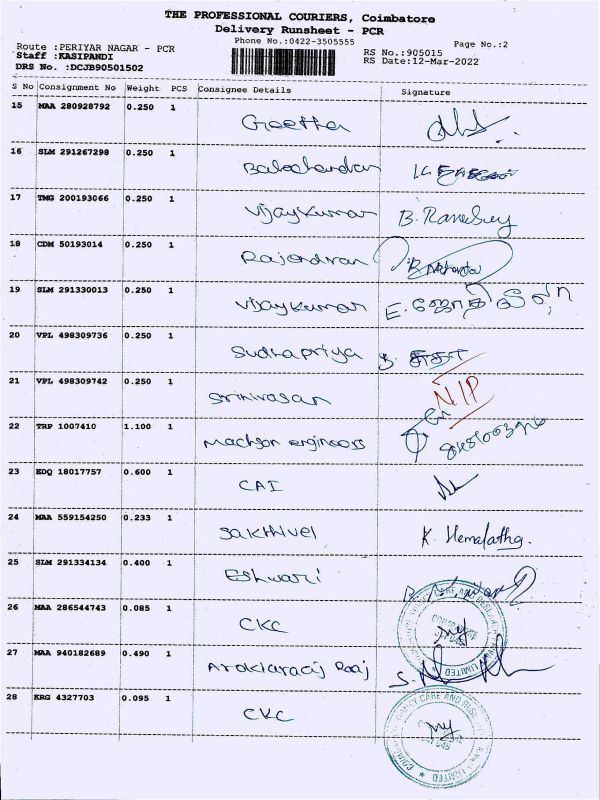 THE PROFESSIONAL COURIERS, Coimbatore
Delivery Runsheet - PCR
Phone No.:0422-3505555
Page No.:2
Route :PERIYAR NAGAR - PCR
Staff :KASIPANDI
DRS No. :DCJB90501502
RS No.:905015
RS Date:12-Mar-2022
S No Consignment No Weight PCS Consignee Details Signature
15 MAA 280928792 0.250 1 Geetha
16 SLM 291267298 0.250 1 Balachandran
17 TMG 200193066 0.250 1 Vijaykumar
18 CDM 50193014 0.250 1 Rajendran
19 SLM 291330013 0.250 1 Vijaykumar E.
20 VPL 498309736 0.250 1 Sudhapriya
21 VPL 498309742 0.250 1 Srinivasan NIP
22 TRP 1007410 1.100 1 Machson engineers
23 EDQ 18017757 0.600 1 CAI
24 MAA 559154250 0.233 1 Sakthivel K. Hemalatha.
25 SLM 291334134 0.400 1 Eshwari
26 MAA 286544743 0.085 1 CKC
27 MAA 940182689 0.490 1 Arokiaraj Raaj
28 KRG 4327703 0.095 1 CKC